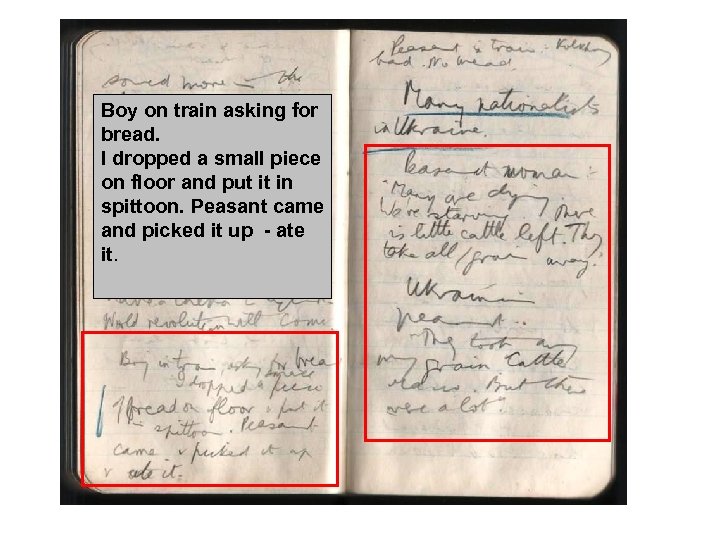 sowed more - the
Boy on train asking for
bread.
I dropped a small piece
on floor and put it in
spittoon. Peasant came
and picked it up - ate
it.
World revolution will come.
Boy in train asking for brea
dropped a small piece
of bread on floor & put it
in spittoon. Peasant
came & picked it up
& ate it.
Peasant in train:
bad. No bread.
Many nationalists
in Ukraine.
Peasant woman:-
"Many are dying.
We're starving. There
is little cattle left. They
take all grain away."
Ukrainian
peasant..
"They took away
my grain Cattle
But there
were a lot".